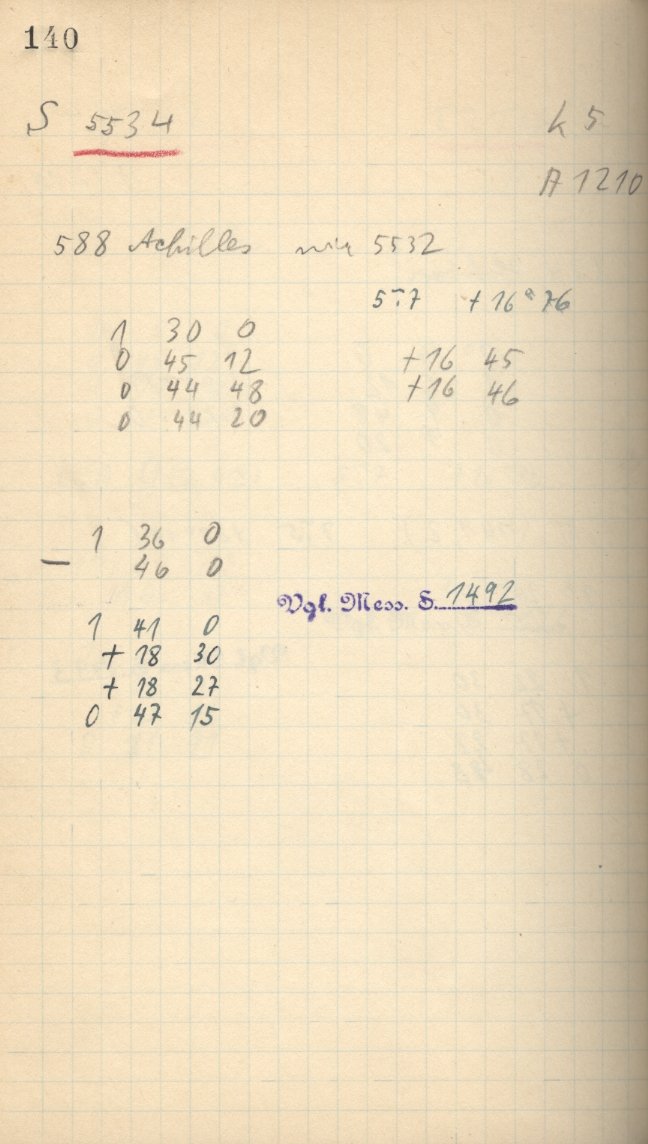 140
S 5534 k 5
A 1210
588 Achilles wie 5532
5 7 + 16 a 76
1 30 0
0 45 12 +16 45
0 44 48 +16 46
0 44 20
1 36 0
— 46 0
Vgl. Mess. S. 1492
1 41 0
+ 18 30
+ 18 27
0 47 15